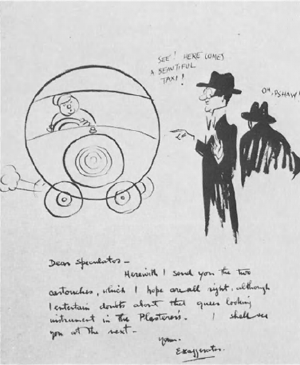 SEE! HERE COMES
A BEAUTIFUL
TAXI!
OH, PSHAW!
Dear Speculator –
Herewith I send you the two
cartouches, which I hope are all right, although
I entertain doubts about that queer looking
instrument in the Plasterer's. I shall see
you at the next.
Yours.
Exaggerator.